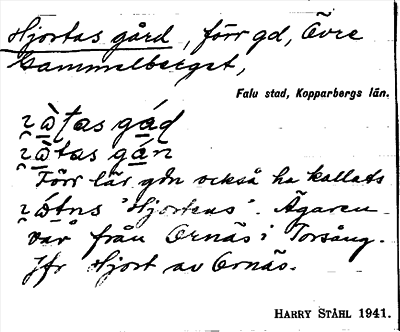 Hjortas gård, förr gd, Övre
Gammelberget,
Falu stad, Kopparbergs län.
gád
gán
Förr lär gdn också ha kallats
"Hjortens". Ägaren
var från Ornäs i Torsång.
Jfr Hjort av Ornäs.
HARRY STÅHL 1941.